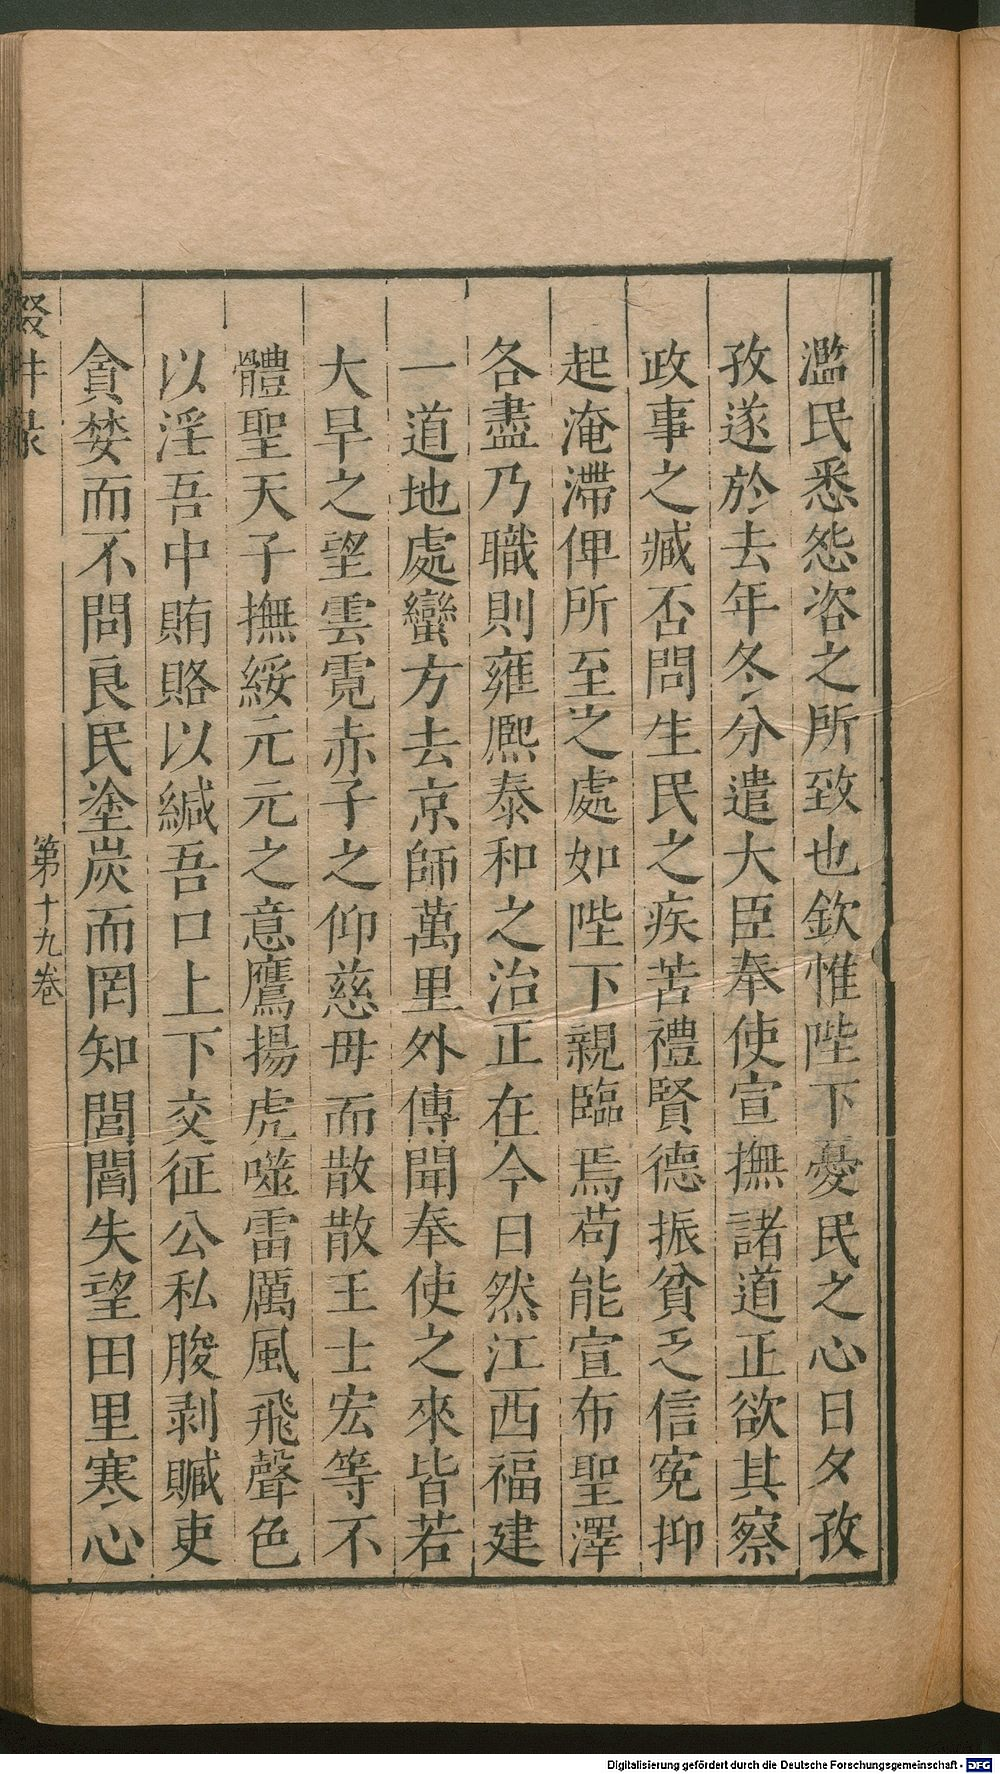 濫民悉怨咨之所致也欽惟陛下憂民之心日夕孜
孜遂於去年冬分遣大臣奉使宣撫諸道正欲其察
政事之臧否問生民之疾苦禮賢德振貧乏信冤抑
起淹滯俾所至之處如陛下親臨焉苟能宣布聖澤
各盡乃職則雍熙泰和之治正在今日然江西福建
一道地處蠻方去京師萬里外傳聞奉使之來皆若
大旱之望雲霓赤子之仰慈母而散散王士宏等不
體聖天子撫綏元元之意鷹揚虎噬雷厲風飛聲色
以淫吾中賄賂以緘吾口上下交征公私朘剥贓吏
貪婪而不問良民塗炭而罔知閭閻失望田里寒心
輟畊録
第十九卷
Digitalisierung gefördert durch die Deutsche Forschungsgemeinschaft - DFG